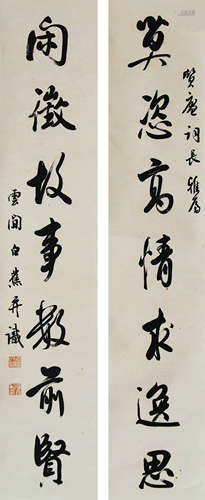 詞長雅屬
莫恣高情求逸思
閑徵故事數前賢
雲間白蕉并識